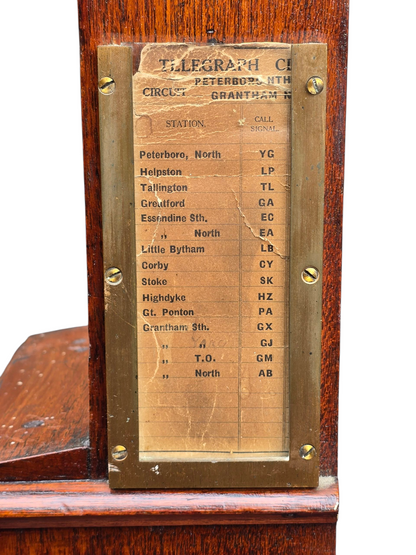 TELEGRAPH
PETERBORO NTH
CIRCUIT
GRANTHAM N
STATION. CALL SIGNAL.
Peterboro, North YG
Helpston LP
Tallington TL
Greatford GA
Essendine Sth. EC
„ North EA
Little Bytham LB
Corby CY
Stoke SK
Highdyke HZ
Gt. Ponton PA
Grantham Sth. GX
„ „ GJ
„ T.O. GM
„ North AB